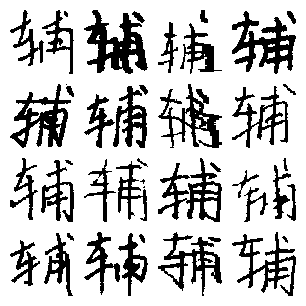 辅辅辅辅
辅辅辅辅
辅辅辅辅
辅辅辅辅